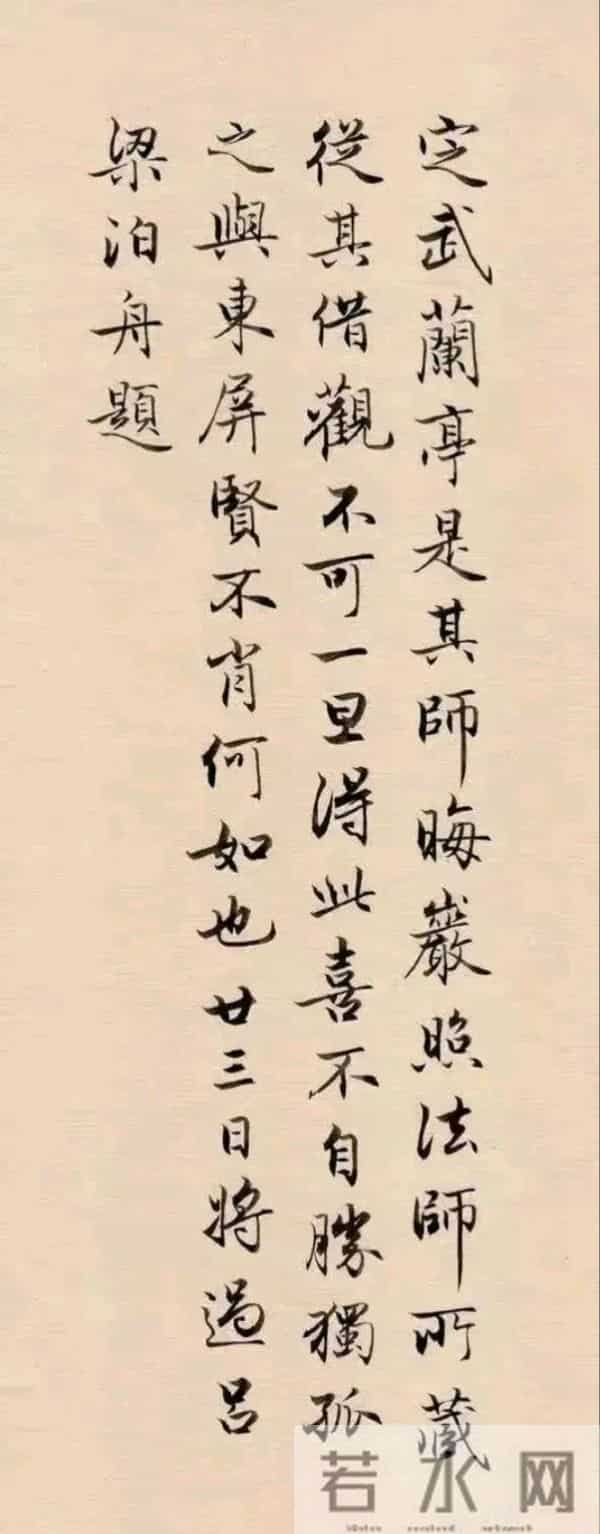 定武蘭亭是其師晦巖照法師所藏
從其借觀不可一旦得此喜不自勝獨孤
之與東屏賢不肖何如也廿三日將過呂
梁泊舟題
若水网